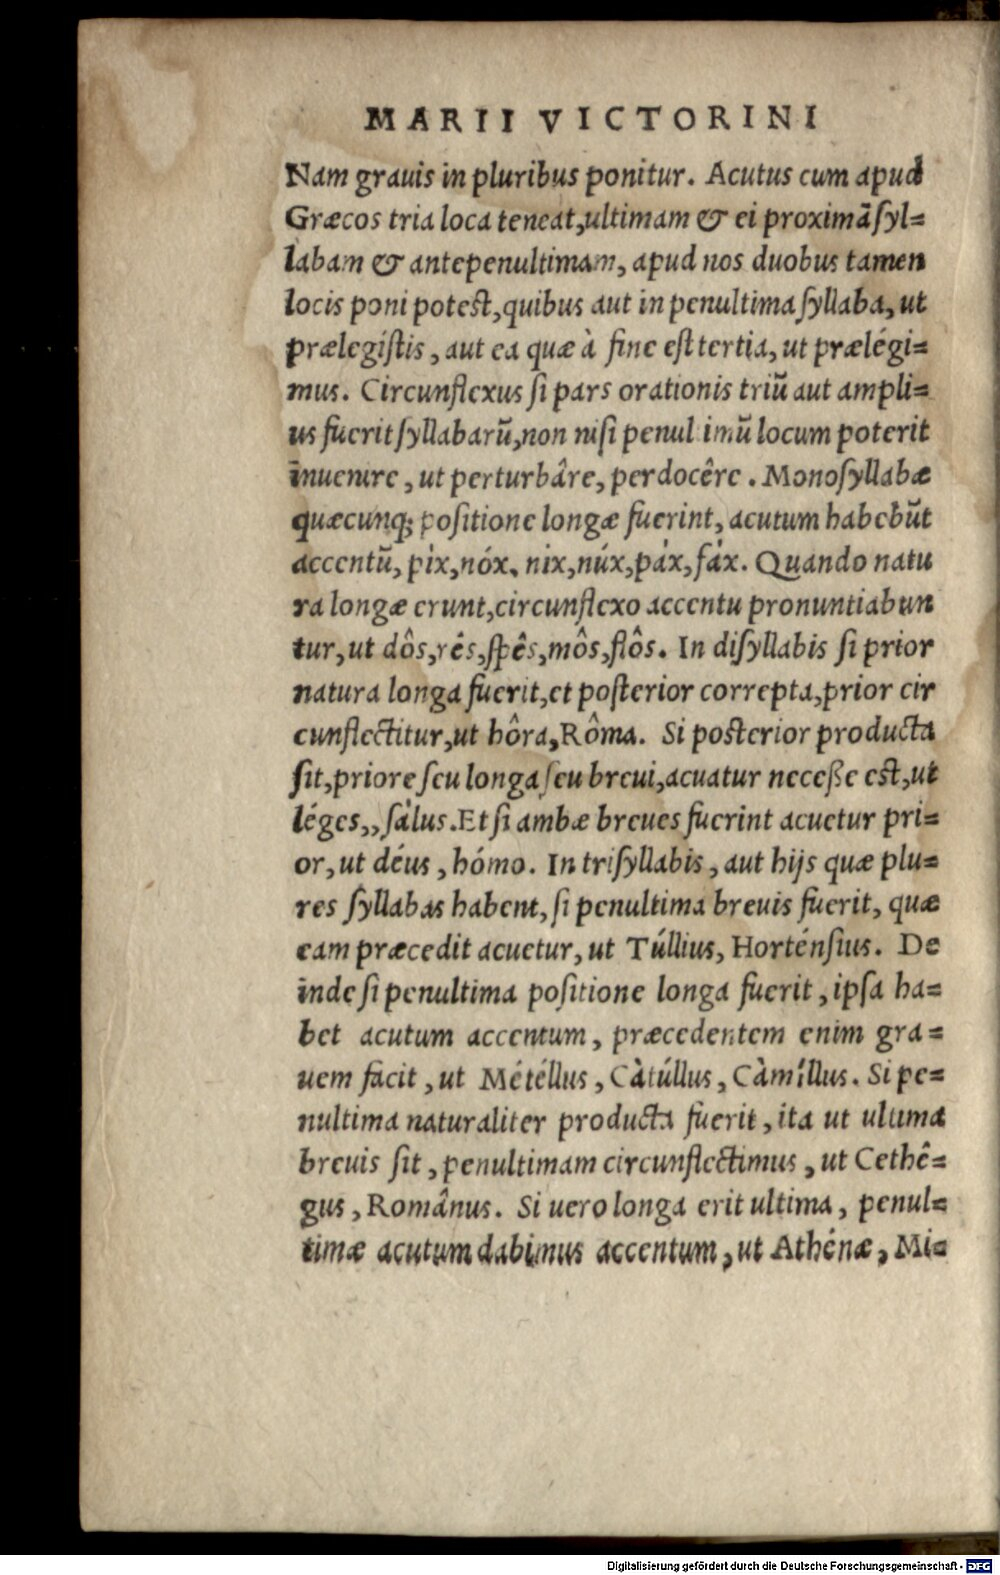 MARII VICTORINI
Nam grauis in pluribus ponitur. Acutus cum apud
Græcos tria loca teneat, ultimam & ei proximā ſyl=
labam & antepenultimam, apud nos duobus tamen
locis poni potest, quibus aut in penultima ſyllaba, ut
prælegíſtis, aut ea quæ à fine eſt tertia, ut prælégi=
mus. Circunflexus ſi pars orationis triū aut ampli=
us fuerit ſyllabarū, non niſi penultimū locum poterit
inuenire, ut perturbâre, perdocêre. Monoſyllabæ
quæcunq; poſitione longæ fuerint, acutum habebūt
accentū, píx, nóx, nix, núx, páx, fáx. Quando natu
ra longæ erunt, circunflexo accentu pronuntiabun
tur, ut dôs, rês, ſpês, môs, flôs. In diſyllabis ſi prior
natura longa fuerit, et poſterior correpta, prior cir
cunflectitur, ut hôra, Rôma. Si poſterior producta
ſit, priore ſeu longa ſeu breui, acuatur neceſſe eſt, ut
léges,, ſàlus. Et ſi ambæ breues fuerint acuetur pri=
or, ut déus, hómo. In triſyllabis, aut hijs quæ plu=
res ſyllabas habent, ſi penultima breuis fuerit, quæ
eam præcedit acuetur, ut Túllius, Horténſius. De
inde ſi penultima poſitione longa fuerit, ipſa ha=
bet acutum accentum, præcedentem enim gra=
uem facit, ut Météllus, Càtúllus, Càmíllus. Si pe=
nultima naturaliter producta fuerit, ita ut ultima
breuis ſit, penultimam circunflectimus, ut Cethê=
gus, Românus. Si uero longa erit ultima, penul=
timæ acutum dabimus accentum, ut Athénæ, Mi=
Digitalisierung gefördert durch die Deutsche Forschungsgemeinschaft - DFG